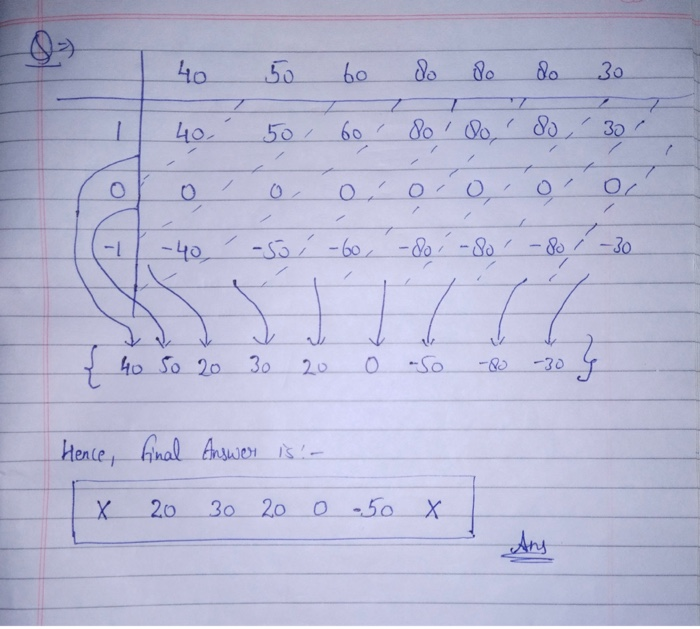 Q ⇒
40 50 60 80 80 80 30
1 40 50 60 80 80 80 30
0 0 0 0 0 0 0 0
-1 -40 -50 -60 -80 -80 -80 -30
{ 40 50 20 30 20 0 -50 -80 -30 }
Hence, final Answer is :-
X 20 30 20 0 -50 X
Ans